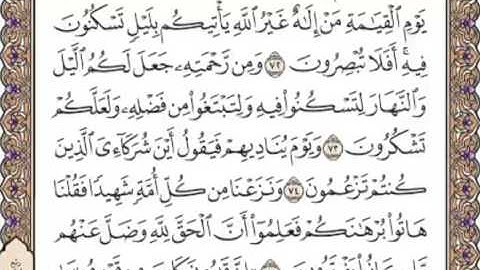 يَوْمِ ٱلْقِيَٰمَةِ مَنْ إِلَٰهٌ غَيْرُ ٱللَّهِ يَأْتِيكُم بِلَيْلٍ تَسْكُنُونَ
فِيهِ ۖ أَفَلَا تُبْصِرُونَ ٧٢ وَمِن رَّحْمَتِهِۦ جَعَلَ لَكُمُ ٱلَّيْلَ
وَٱلنَّهَارَ لِتَسْكُنُوا۟ فِيهِ وَلِتَبْتَغُوا۟ مِن فَضْلِهِۦ وَلَعَلَّكُمْ
تَشْكُرُونَ ٧٣ وَيَوْمَ يُنَادِيهِمْ فَيَقُولُ أَيْنَ شُرَكَآءِىَ ٱلَّذِينَ
كُنتُمْ تَزْعُمُونَ ٧٤ وَنَزَعْنَا مِن كُلِّ أُمَّةٍ شَهِيدًا فَقُلْنَا
هَاتُوا۟ بُرْهَٰنَكُمْ فَعَلِمُوٓا۟ أَنَّ ٱلْحَقَّ لِلَّهِ وَضَلَّ عَنْهُم